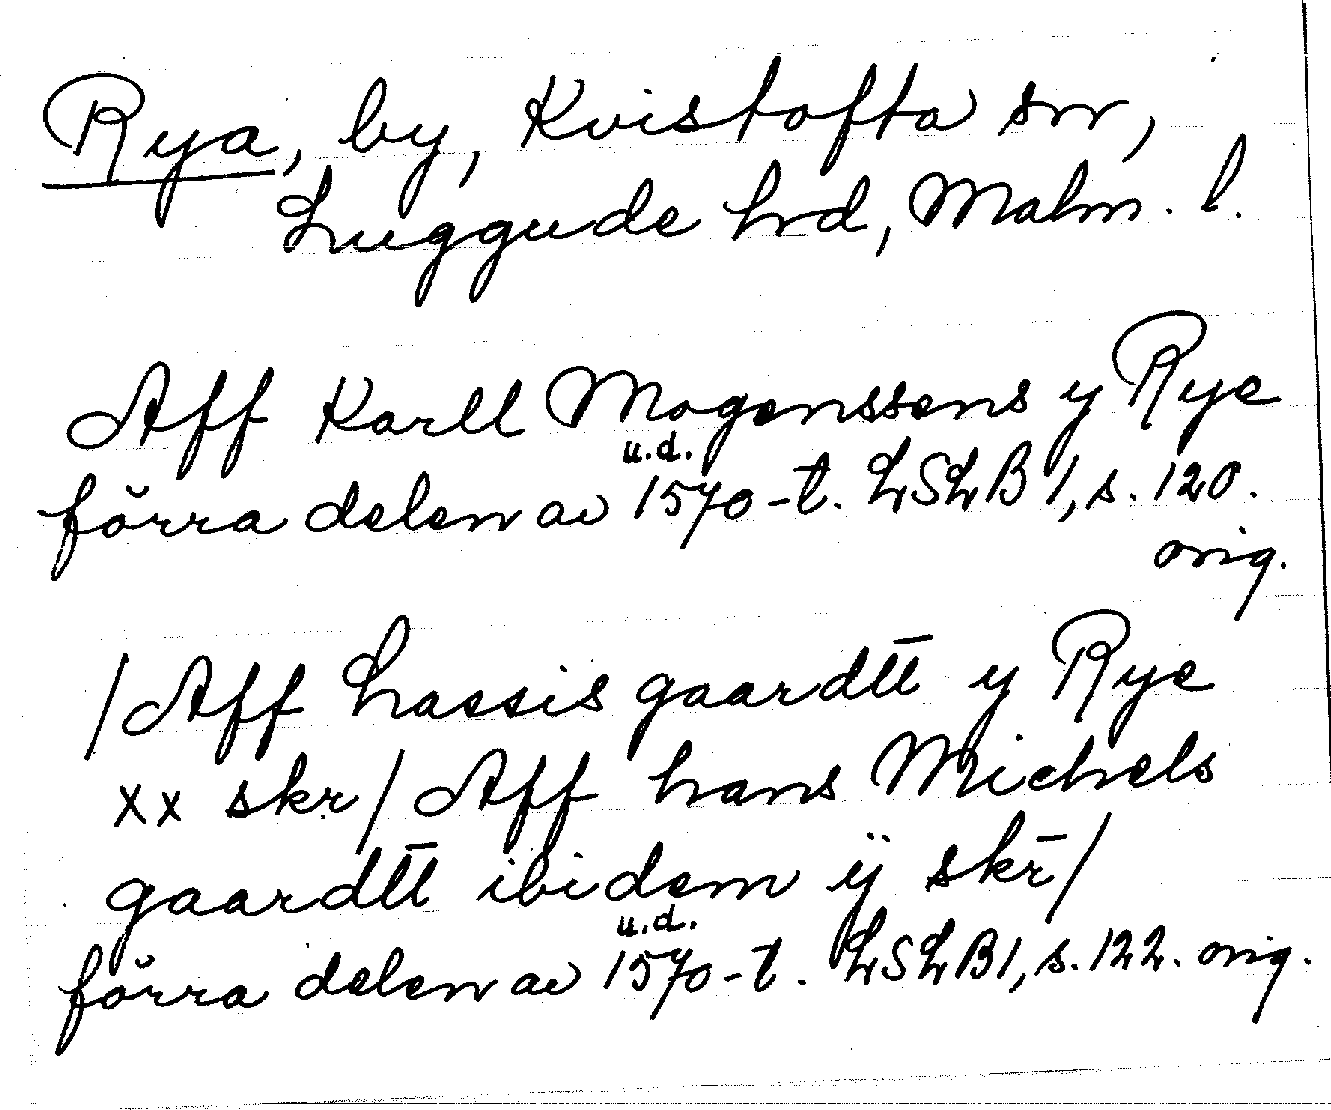 Rya, by, Kvistofta sn,
Luggude hrd, Malm. l.
Aff Karll Mogenssens y Rye
u.d.
förra delen av 1570-t. LSLB 1, s. 120.
orig.
/Aff Lassis gaardtt y Rye
xx skr/ Aff hans Michels
gaardtt ibidem ÿ skr/
u.d.
förra delen av 1570-t. LSLB1, s. 122. orig.